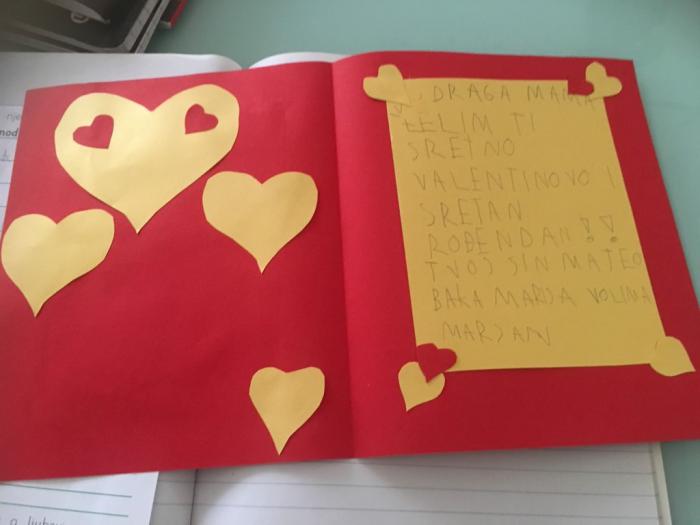 DRAGA MAMA
ŽELIM TI
SRETNO
VALENTINOVO I
SRETAN
ROĐENDAN!!
TVOJ SIN MATEO
BAKA MARIJA VOLIMA
MARJAN